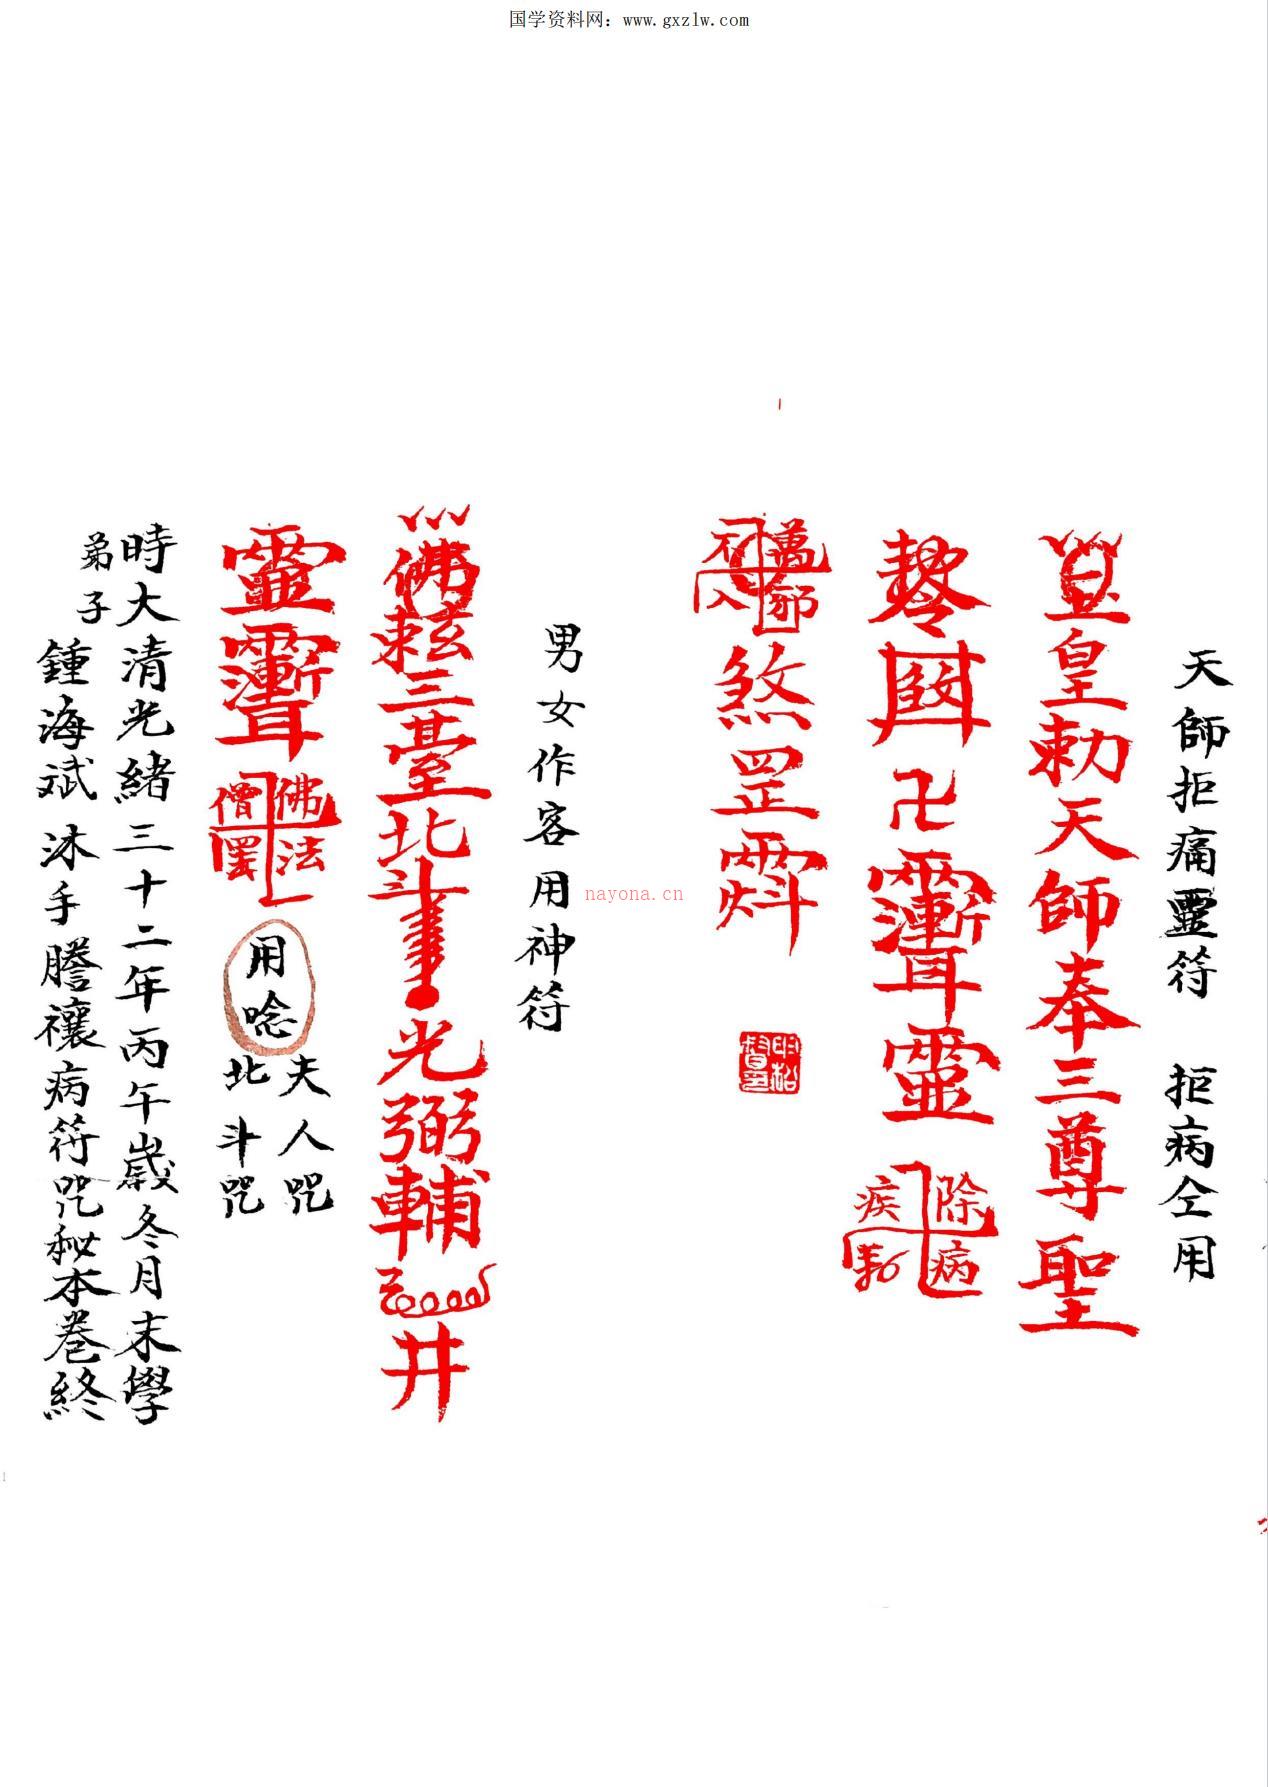 国学资料网：www.gxzlw.com
天師拒痛靈符 拒病仝用
皇勅天師奉三尊聖
卍
除病疾
萬邪不入
煞罡
男女作客用神符
佛 三臺北斗 光弼輔 井
佛法僧
用唸
夫人咒
北斗咒
時大清光緒三十二年丙午歲冬月末學
弟子
鍾海斌沐手謄禳病符咒秘本卷終
nayona.cn